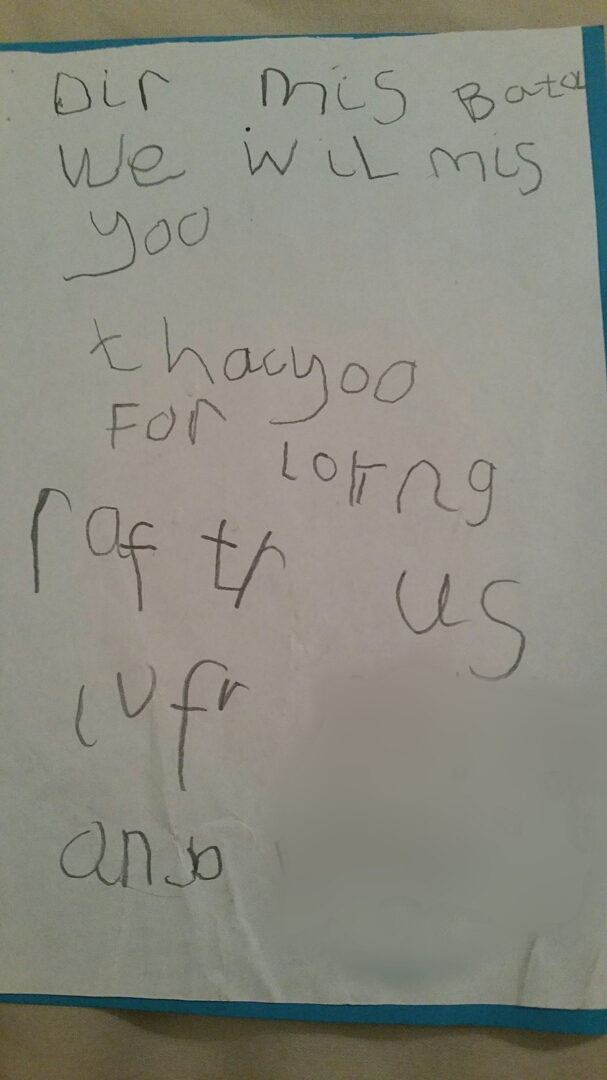 Dir mis Bata
We wil mis
yoo
thacyoo
For
loking
raftr us
luf r
anb